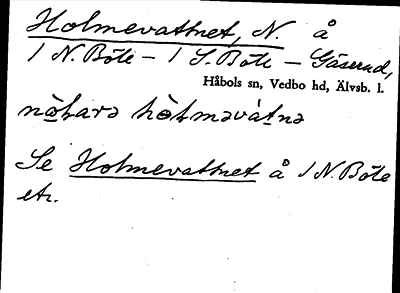 Holmevattnet, N. å
1 N. Böle – 1 S. Böle – Gäserud,
Håbols sn, Vedbo hd, Älvsb. l.
Se Holmevattnet å 1 N. Böle
etc.